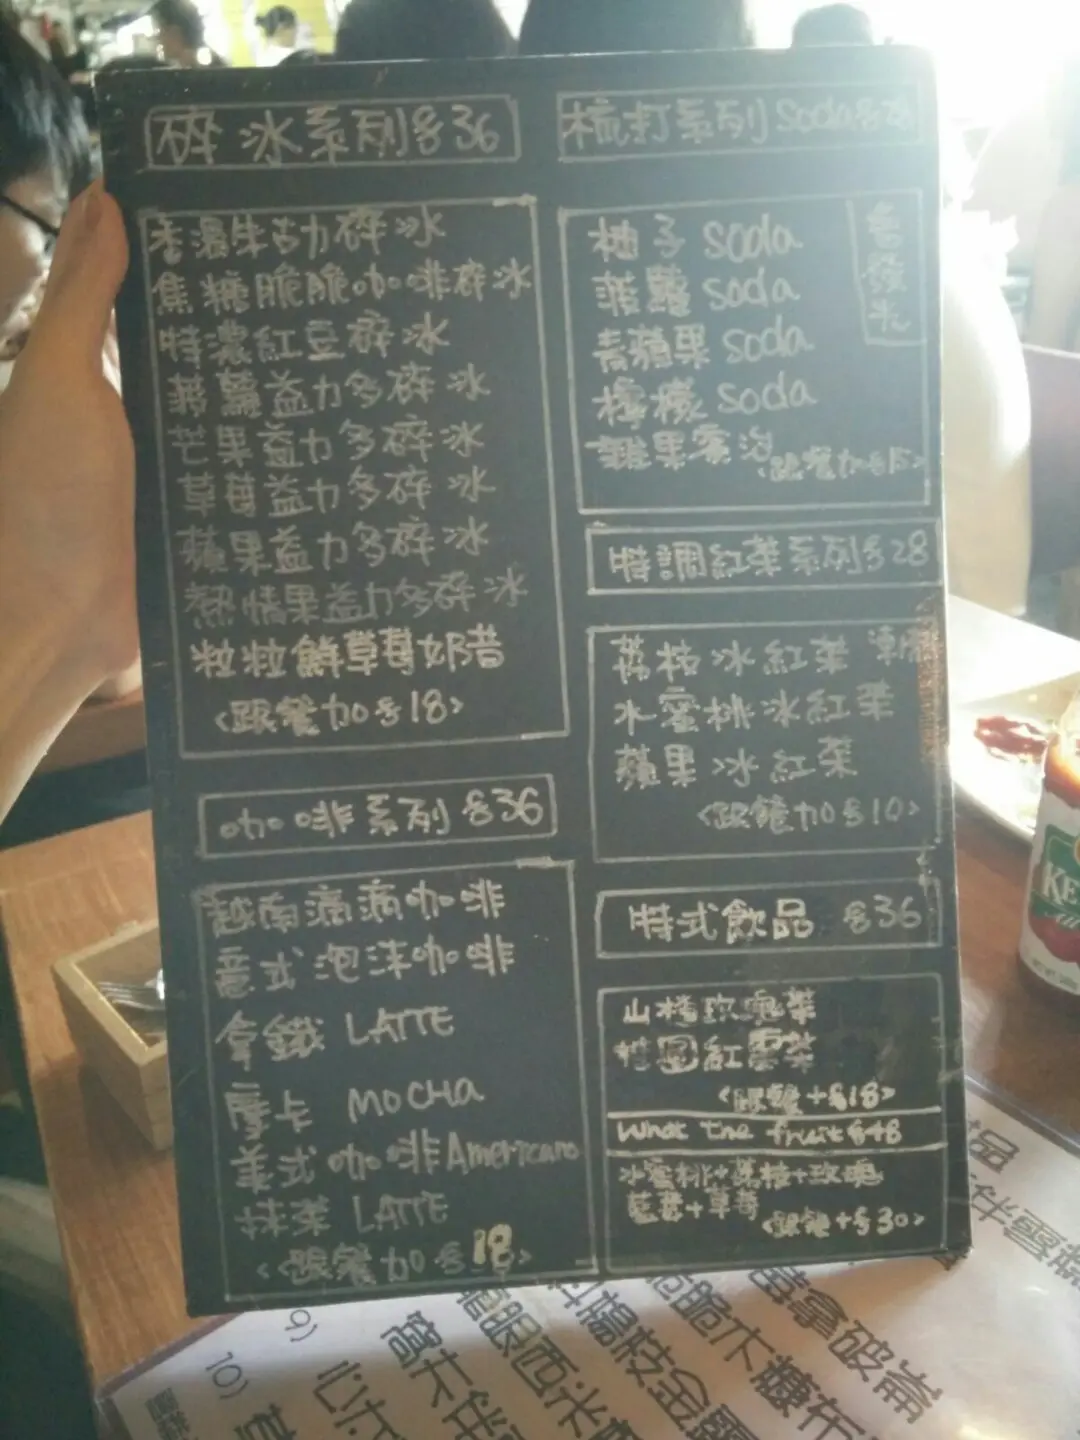 碎冰系列 $36
香濃朱古力碎冰
焦糖脆脆咖啡碎冰
特濃紅豆碎冰
菠蘿益力多碎冰
芒果益力多碎冰
草莓益力多碎冰
蘋果益力多碎冰
熱情果益力多碎冰
粒粒鮮草莓奶昔
<跟餐加$18>
咖啡系列 $36
越南滴滴咖啡
意式泡沫咖啡
拿鐵 LATTE
摩卡 MOCHA
美式咖啡 Americano
抹茶 LATTE
<跟餐加$18>
梳打系列 Soda $28
柚子 soda
菠蘿 soda
青蘋果 soda
檸檬 soda
雜果賓治
<跟餐加$15>
特調紅茶系列 $28
荔枝冰紅茶
水蜜桃冰紅茶
蘋果冰紅茶
<跟餐加$10>
特式飲品 $36
山楂玫瑰茶
桂圓紅棗茶
<跟餐+$18>
What the fruit $48
水蜜桃+荔枝+玫瑰
藍莓+草莓
<跟餐+$30>
KE
9)
10)